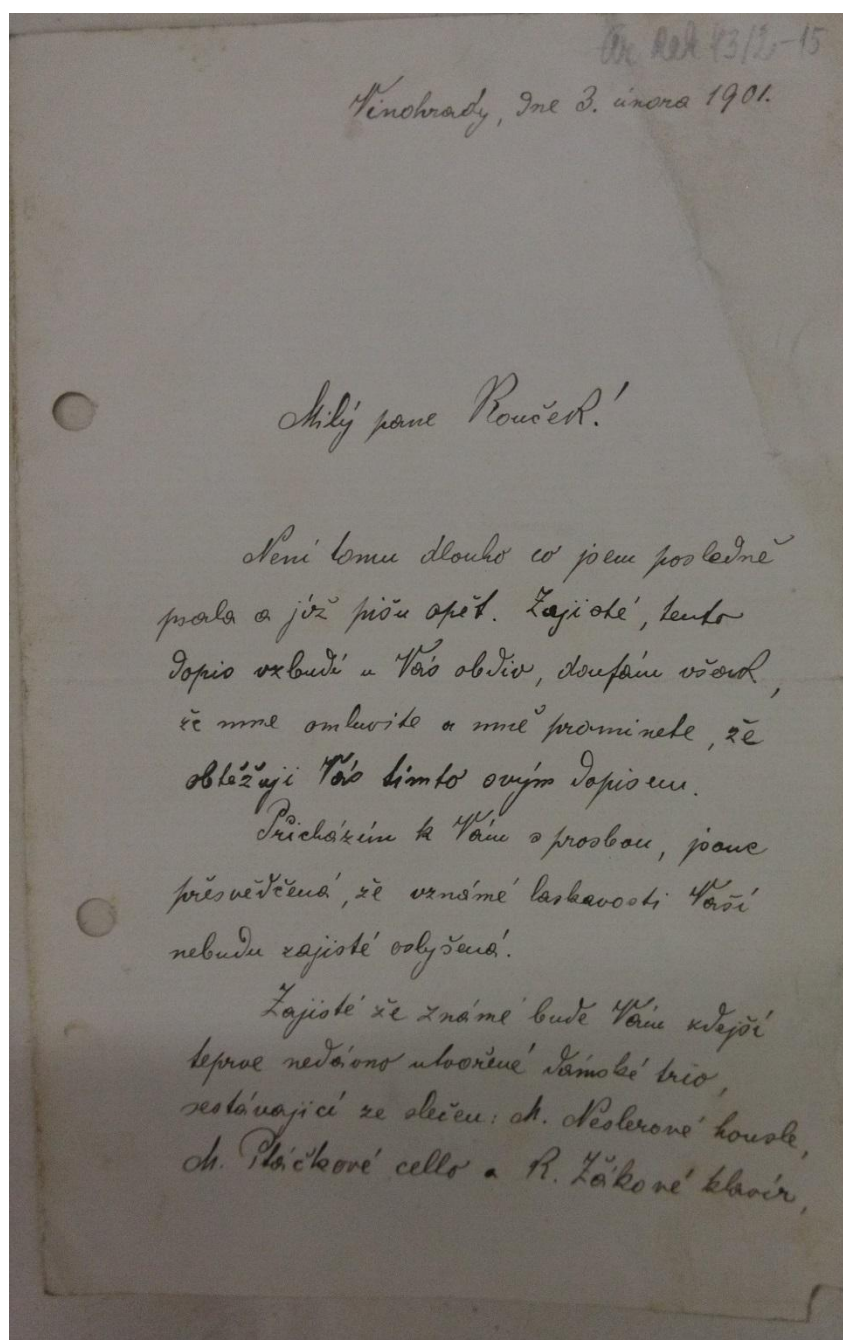 Vinohrady, dne 3. února 1901.
Milý pane Rouček!
Není tomu dlouho co jsem posledně
psala a již píšu opět. Zajisté, tento
dopis vzbudí u Vás obdiv, doufám však,
že mne omluvíte a mně prominete, že
obtěžuji Vás tímto svým dopisem.
Přicházím k Vám s prosbou, jsouc
přesvědčená, že vznámé laskavosti Vaší
nebudu zajisté oslyšená.
Zajisté že známé bude Vám zdejší
teprve nedávno utvořené dámské trio,
sestávající ze slečen: M. Neslerové housle,
M. Ptáčkové cello a R. Žákové klavír,